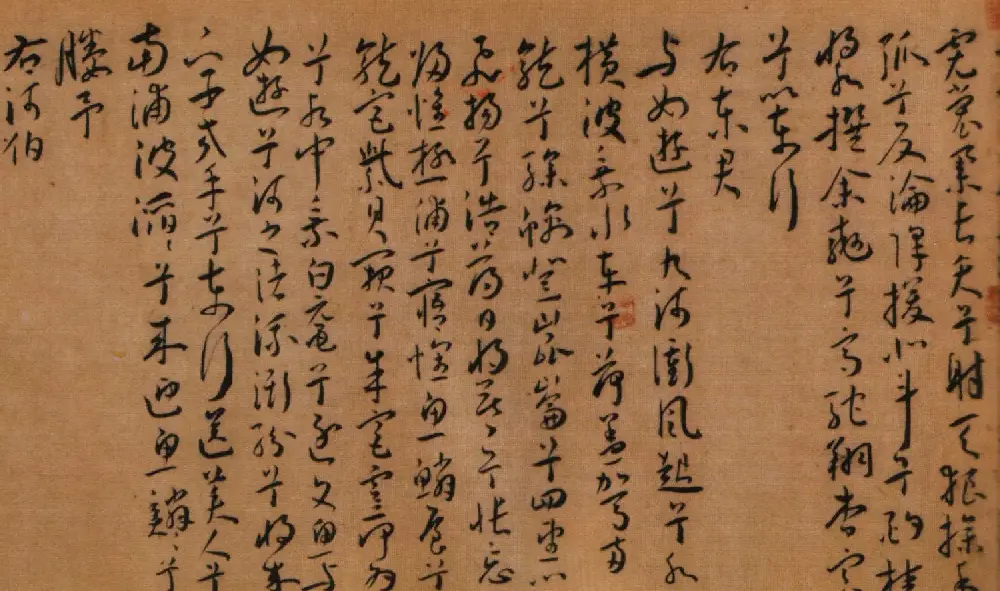 霓裳舉長矢兮射天狼操余
弧兮反淪降援北斗兮酌桂
漿撰余轡兮高駝翔杳冥
兮以東行
右東君
与如遊兮九河衝風起兮水
橫波乘水車兮荷蓋駕兩
龍兮驂螭登崑崙兮四望心
飛揚兮浩蕩日將暮兮悵忘
歸惟極浦兮寤懷魚鱗屋兮
龍堂紫貝闕兮朱宮靈何為
兮水中乘白黿兮逐文魚与
如遊兮河之渚流澌紛兮將來
下子交手兮東行送美人兮
南浦波滔〻兮來迎魚鱗〻兮
媵予
右河伯